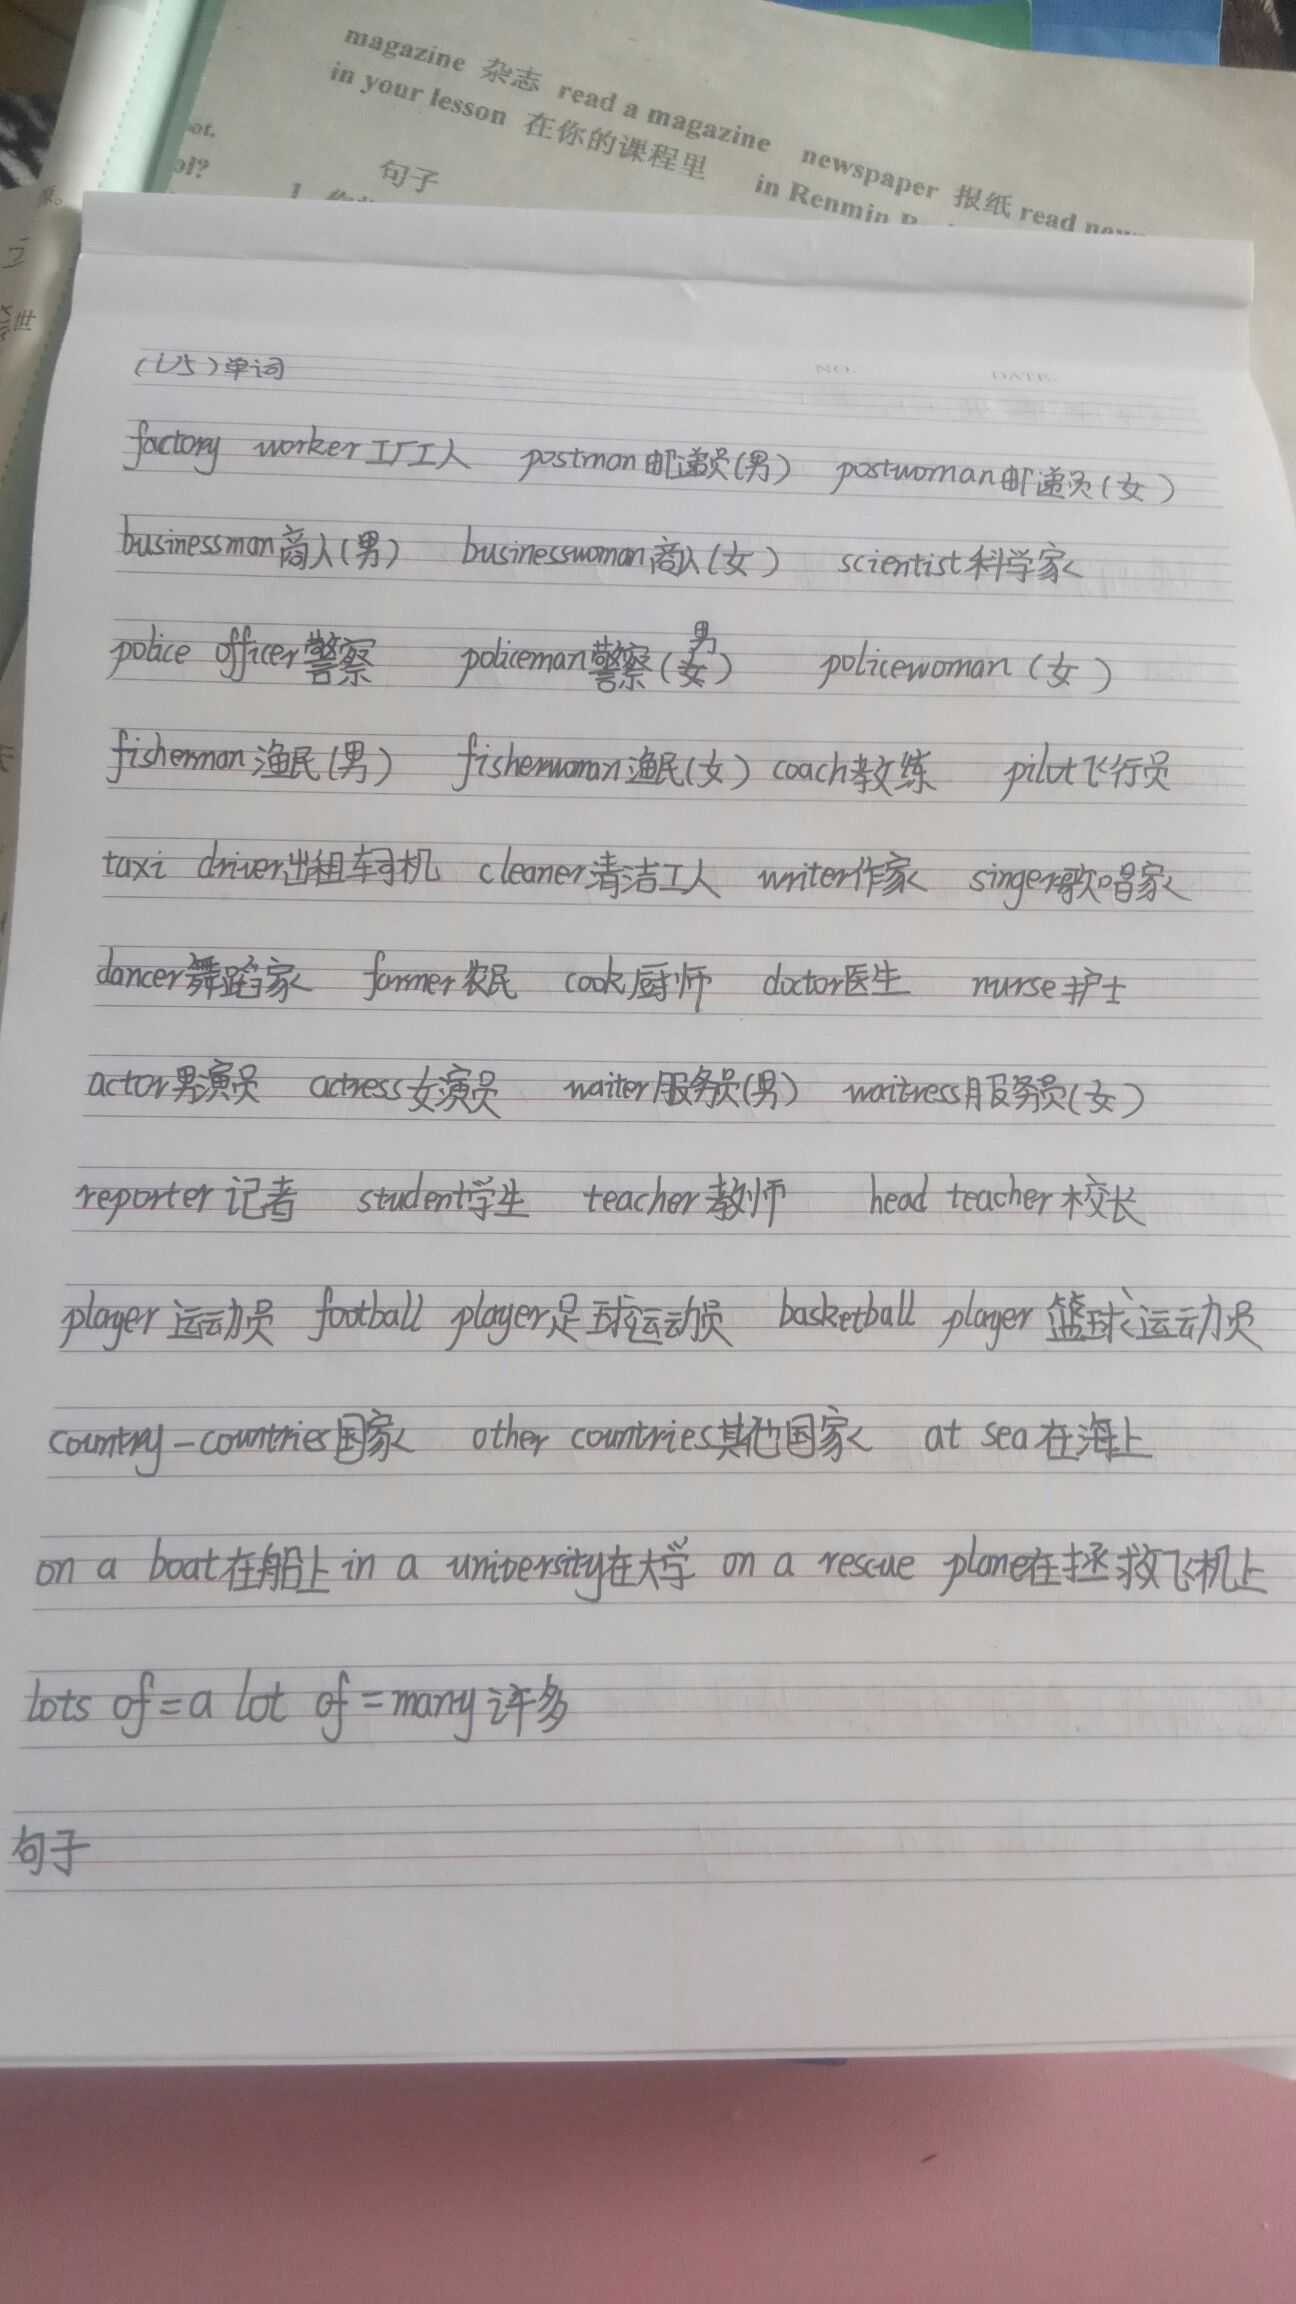 magazine 杂志 read a magazine newspaper 报纸 read
in your lesson 在你的课程里 in Renmin
句子
1.
ol?
世
(U5)单词
NO. DATE.
factory worker工厂工人 postman邮递员(男) postwoman邮递员(女)
businessman商人(男) businesswoman商人(女) scientist科学家
police officer警察 policeman警察(男) policewoman(女)
fisherman渔民(男) fisherwoman渔民(女) coach教练 pilot飞行员
taxi driver出租车司机 cleaner清洁工人 writer作家 singer歌唱家
dancer舞蹈家 farmer农民 cook厨师 doctor医生 nurse护士
actor男演员 actress女演员 waiter服务员(男) waitress服务员(女)
reporter记者 student学生 teacher教师 head teacher校长
player运动员 football player足球运动员 basketball player篮球运动员
country-countries国家 other countries其他国家 at sea在海上
on a boat在船上 in a university在大学 on a rescue plane在拯救飞机上
lots of=a lot of=many许多
句子